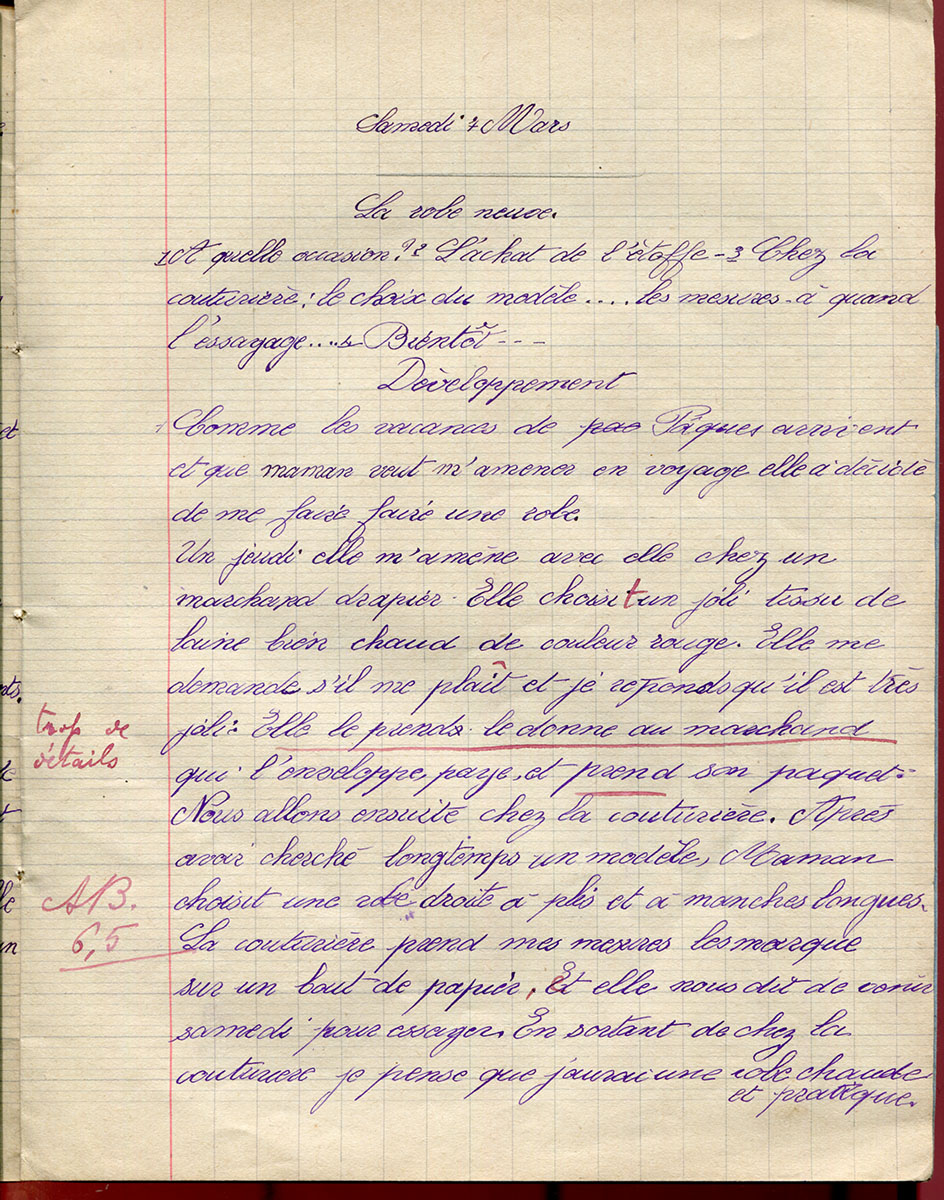 Samedi 7 Mars
La robe neuve.
1 A quelle occasion? 2 L'achat de l'étoffe - 3 Chez la
couturière : le choix du modèle .... les mesures - à quand
l'essayage .... 4 Bientôt - - -
Développement
Comme les vacances de pae Pâques arrivent
et que maman veut m'amener en voyage elle à décidé
de me faire faire une robe.
Un jeudi elle m'amène avec elle chez un
marchand drapier. Elle choisit un joli tissu de
laine bien chaud de couleur rouge. Elle me
demande s'il me plaît et je réponds qu'il est très
joli. Elle le prends le donne au marchand
trop de
détails
qui l'enveloppe, paye, et prend son paquet.
Nous allons ensuite chez la couturière. Après
avoir cherché longtemps un modèle, Maman
choisit une robe droite à plis et à manches longues.
AB.
6,5
La couturière prend mes mesures les marque
sur un bout de papier, Et elle nous dit de venir
samedi pour essayer. En sortant de chez la
couturière je pense que j'aurai une robe chaude
et pratique.